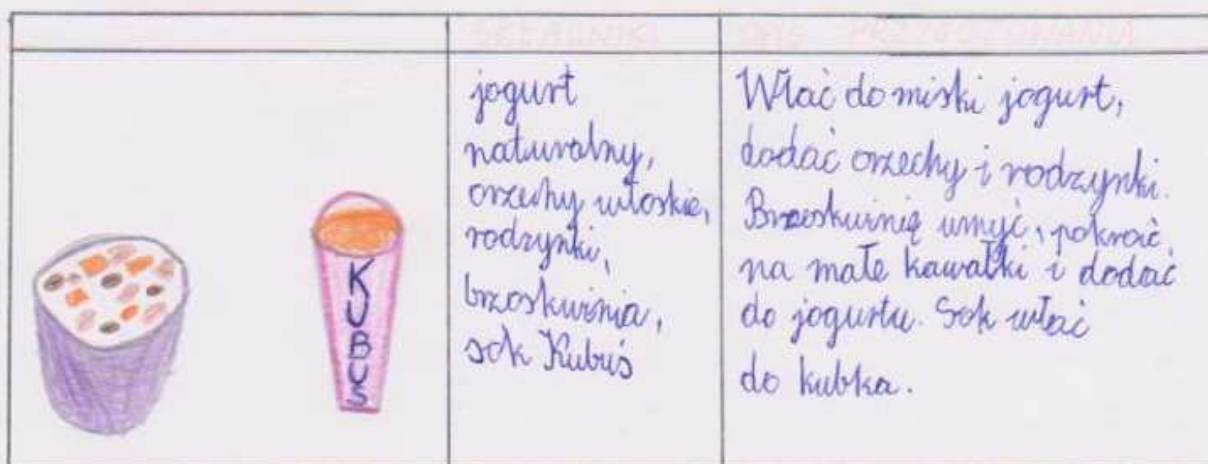 KUBUS
jogurt
naturalny,
orzechy włoskie,
rodzynki,
brzoskwinia,
sok Kubuś
Wlać do miski jogurt,
dodać orzechy i rodzynki.
Brzoskwinię umyć, pokroić
na małe kawałki i dodać
do jogurtu. Sok wlać
do kubka.